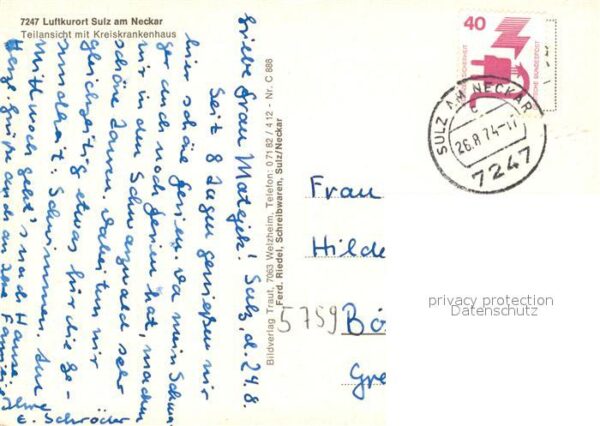 7247 Luftkurort Sulz am Neckar
Teilansicht mit Kreiskrankenhaus
Sulz, d. 24.8.
Liebe Frau Matejek!
Seit 8 Tagen genießen wir
hier schöne Ferien. Da mein Schwie
ger auch noch Ferien hat, machen
wir in den Schwarzwald sehr
schöne Touren. Arbeiten wir
gleichzeitig etwas für die Ge-
sundheit: Schwimmen. Am
Mittwoch geht's nach Hause
Herzl. Grüße auch an Ihre Familie
Ihre
E. Schröder
Bildverlag Traut, 7063 Welzheim, Telefon: 0 71 82 / 4 12 - Nr. C 886
Ferd. Riedel, Schreibwaren, Sulz/Neckar
40
DEUTSCHE BUNDESPOST
SULZ AM NECKAR
c
26.8.74-17
7247
Frau
Hilde
5759 Bö
Gre
privacy protection
Datenschutz